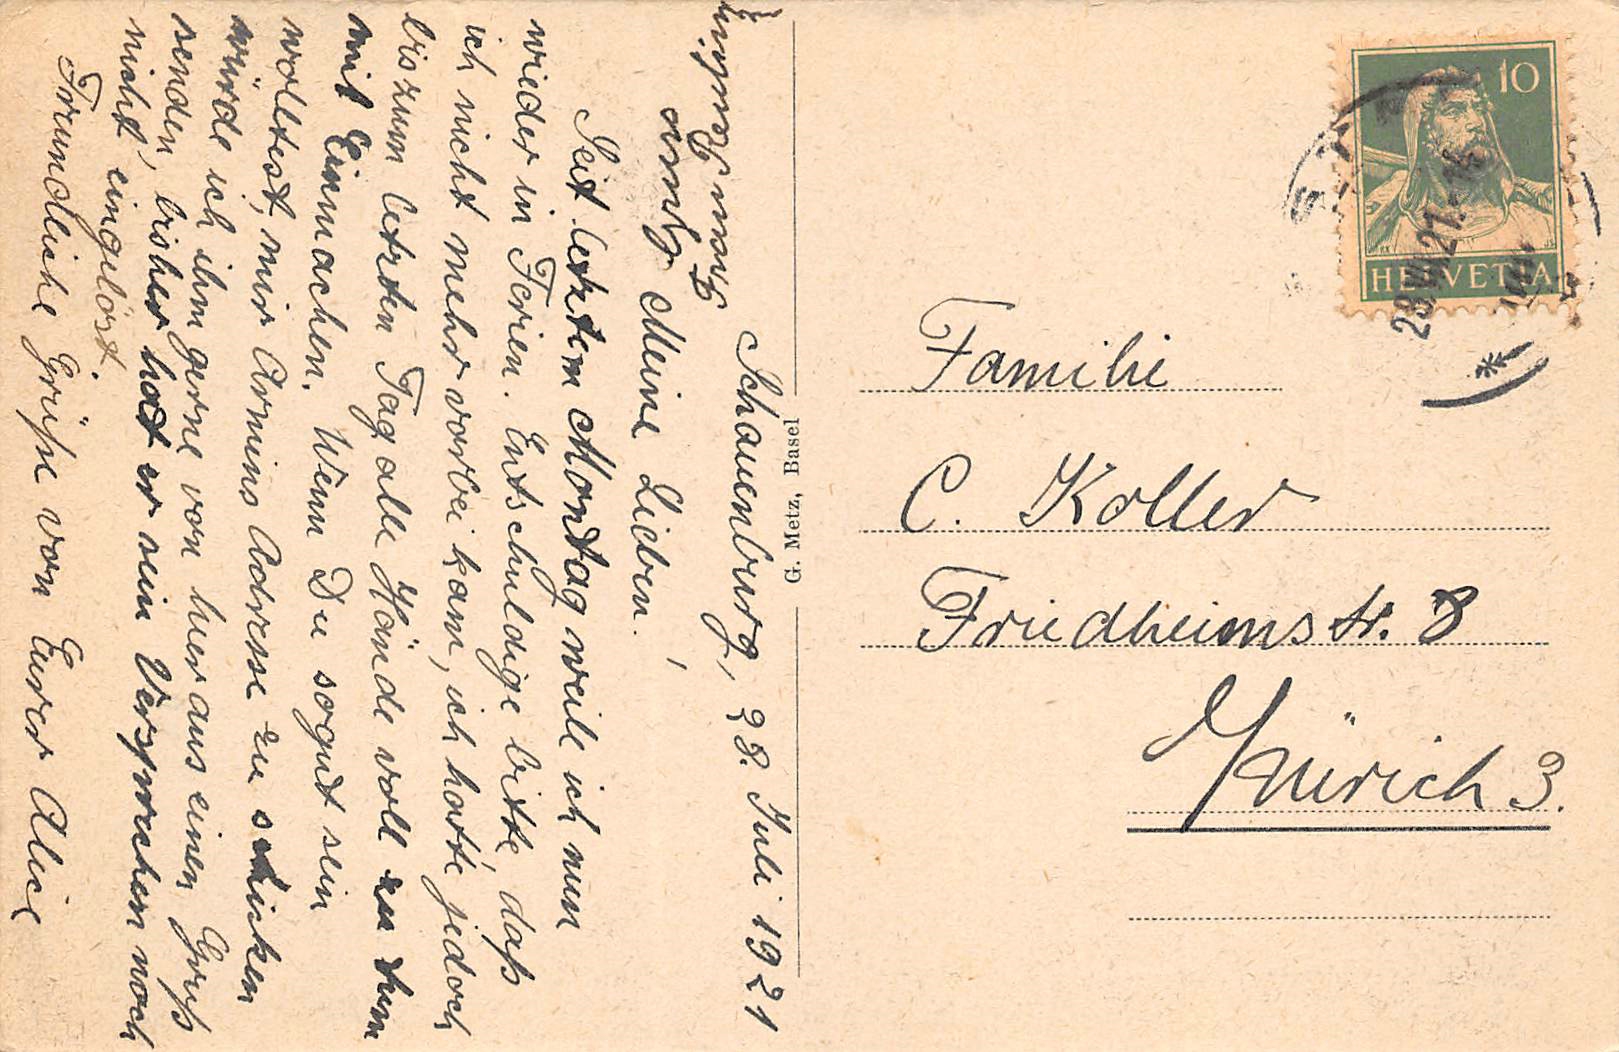 Schauenburg, 28. Juli 1921
Meine Lieben!
Seit letztem Montag weile ich nun
wieder in Ferien. Entschuldige bitte, daß
ich nicht mehr vorbei kam, ich hatte jedoch
bis zum letzten Tag alle Hände voll zu tun
mit Einmachen. Wenn Du so gut sein
wolltest, mir Armins Adresse zu schicken
würde ich ihm gerne von hier aus einen Gruß
senden, bisher hat er sein Versprechen noch
nicht eingelöst.
Freundliche Grüße von Eurer Alice
G. Metz, Basel
10
HELVETIA
28.VII.21.
Familie
C. Koller
Friedheimstr. 8
Zürich 3.